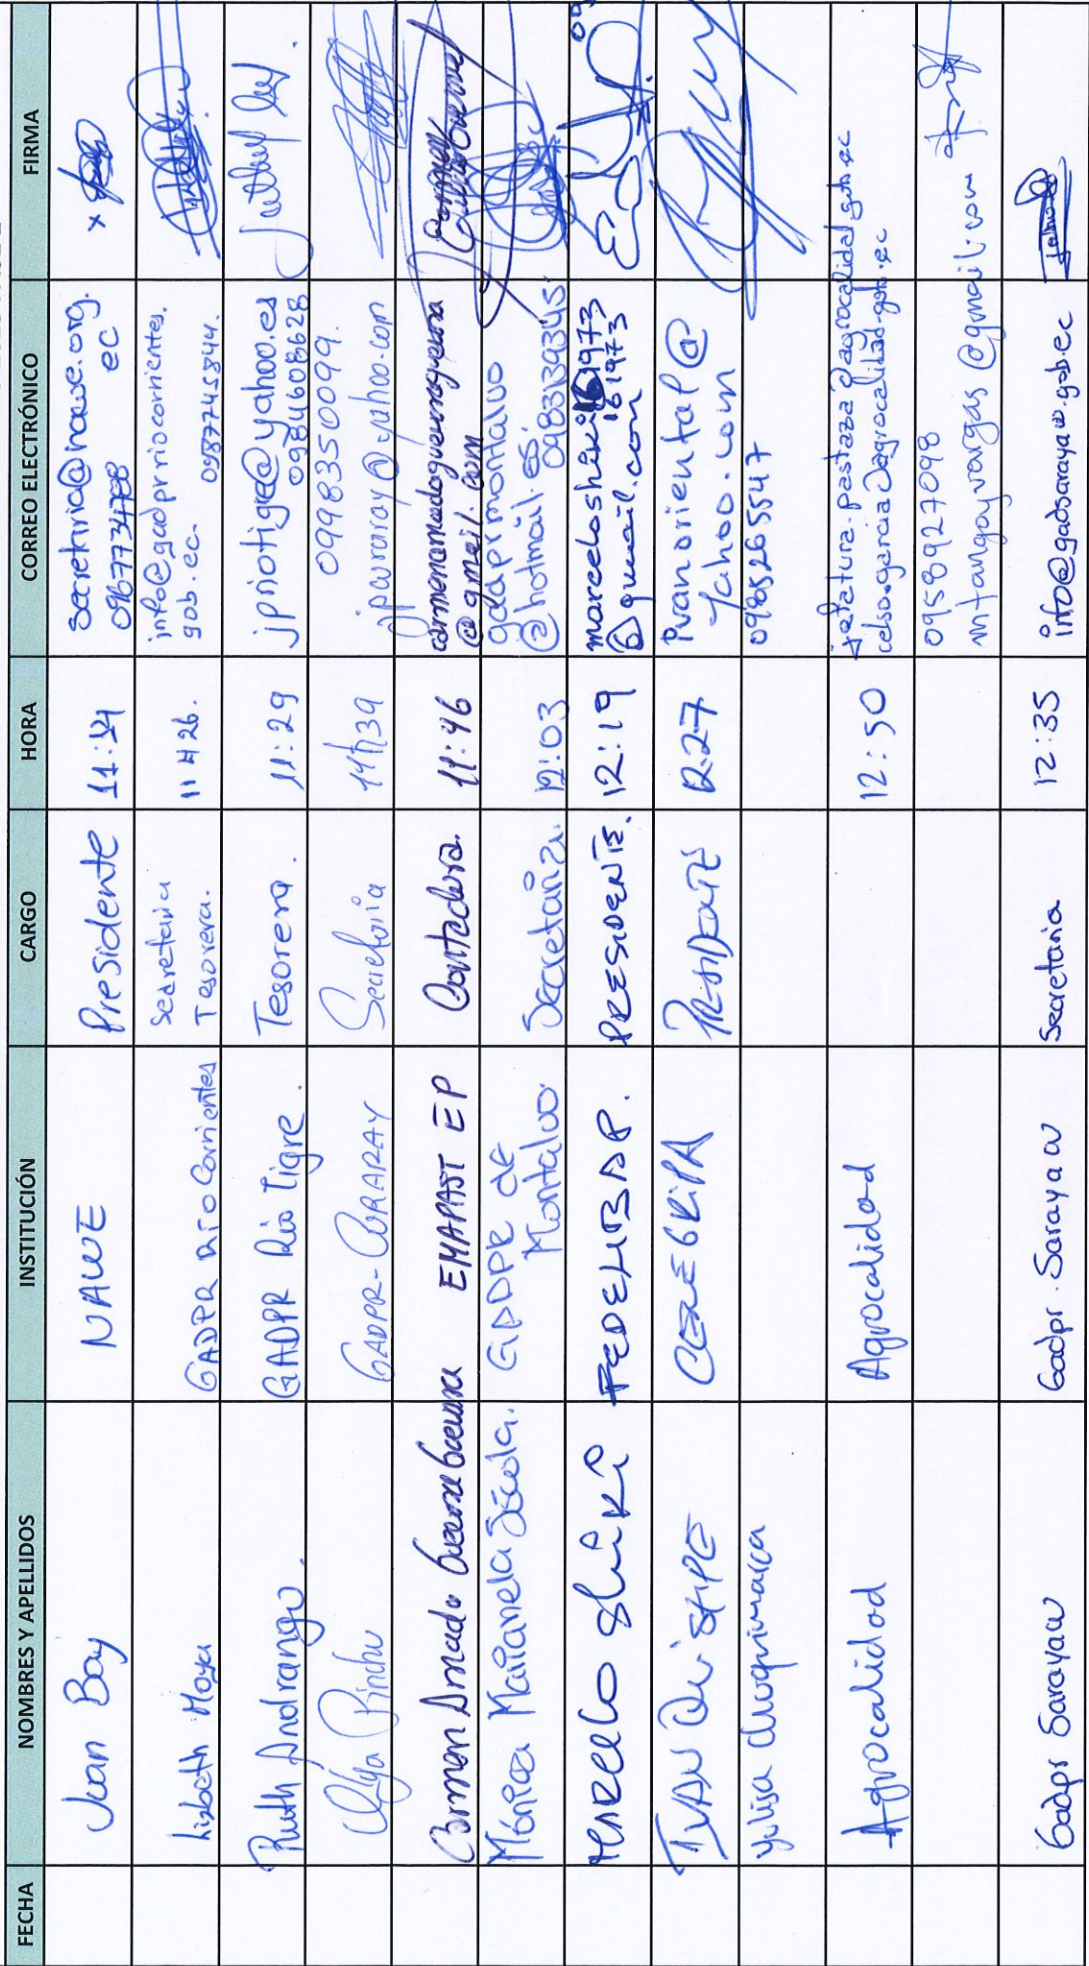 FECHA NOMBRES Y APELLIDOS INSTITUCIÓN CARGO HORA CORREO ELECTRÓNICO FIRMA
Juan Bay NAWE Presidente 11:24 secretaria@nawe.org.
ec
0967734788
Lisbeth Moya GADPR Rio Corrientes Secretaria
Tesorera. 11H26. info@gadprriocorrientes.
gob.ec. 0987745844.
Ruth Andrango. GADPR Rio Tigre. Tesorera. 11:29 jpriotigre@yahoo.es
0984608628
Olga Pinchu GADPR-CURARAY Secretaria 11h39 0998350099.
jpcuraray@yahoo.com
Carmen Amada Guevara Guevara EMAPAST EP Contadora. 11:46 carmenamadaguevaraguevara
@gmail.com
Mónica Marianela GADPR de
Montalvo. Secretaria. 12:03 gadprmontalvo
@hotmail.es.
0983139345
MARCELO SHIKI FEDESHBAP. PRESIDENTE. 12:19 marceloshiki161973
161973
@gmail.com
IVAN QUISHPE PRESIDENTE 12:27 Ivanoriental@
yahoo.com
Yulisa Chuquimarca 0985265547
Agrocalidad Agrocalidad 12:50 jefatura.pastaza@agrocalidad.gob.ec
celso.garcia@agrocalidad.gob.ec
0958927098
mtangoyvargas@gmail.com
Gadpr Sarayaku Gadpr. Sarayaku Secretaria 12:35 info@gadsarayaku.gob.ec